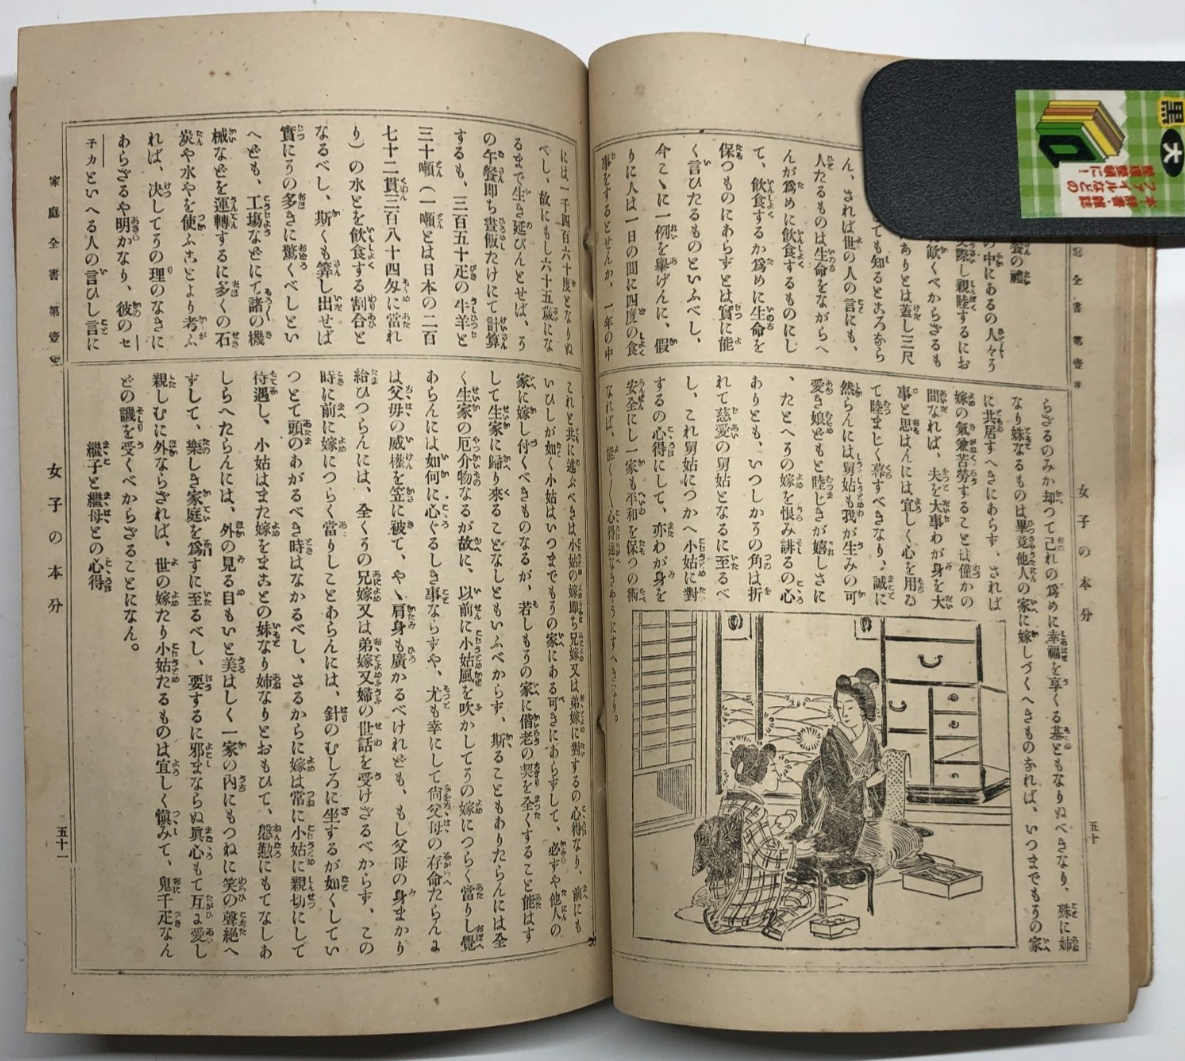 大
黒
本・辞書・雑誌
ファイルなどの
整理整頓に!
全書 第壹
女子の本分
五十
養の禮
の中にあるの人々う
ん、されば世の人の言にも、
人たるものは生命をながらへ
んが爲めに飲食するものにし
て、飲食するか爲めに生命を
保つものにあらずとは實に能
く言ひたるものといふべし、
今こゝに一例を擧げんに、假
りに人は一日の間に四度の食
事をするとせんか、一年の中
らざるのみか却つて己れの爲めに幸福を享くる基ともなりぬべきなり、殊に姉
なり妹なるものは畢竟他人の家に嫁しづくへきものなれば、いつまでもうの家
に共居すへきにあらす、されば
嫁の氣兼苦勞することは僅かの
間なれば、夫を大事わが身を大
事と思はんには宜しく心を用ゐ
て睦まじく暮すべきなり、誠に
然らんには舅姑も我が生みの可
愛き娘どもと睦じきが嬉しさに
、たとへうの嫁を恨み誹るの心
ありとも、いつしかうの角は折
れて慈愛の舅姑となるに至るべ
し、これ舅姑につかへ小姑に對
するの心得にして、亦わが身を
安全にし一家も平和を保つの術
なれば、能く〳〵心得違なきやうにすへきなり。
には一千四百六十度となりぬ
べし、故にもし六十五歳にな
るまで生き延びんとせば、う
の午餐即ち晝飯たけにて計算
するも、三百五十疋の牛羊と
三十噸(一噸とは日本の二百
七十二貫三百八十四匁に當れ
り)の水とを飲食する割合と
なるべし、斯くも算し出せば
實にうの多きに驚くべしとい
へども、工塲などにて諸の機
械などを運轉するに多くの石
炭や水やを使ふことより考ふ
れば、決してうの理のなきに
あらざるや明かなり、彼のセ
子カといへる人の言ひし言に
これと共に述ぶべきは小姑の嫁即ち兄嫁又は弟嫁に對するの心得なり、前にも
いひしが如く小姑はいつまでもうの家にある可きにあらずして、必ずや他人の
家に嫁し付くべきものなるが、若しもうの家に偕老の契を全くすること能はす
して生家に歸り來ることなしともいふべからず、斯ることもありたらんには全
く生家の厄介物なるが故に、以前に小姑風を吹かしてうの嫁につらく當りし覺
あらんには如何に心ぐるしき事ならずや、尤も幸にして尙父母の存命たらんま
は父母の威權を笠に被て、やゝ肩身も廣かるべけれども、もし父母の身まかり
給ひつらんには、全くうの兄嫁又は弟嫁又婦の世話を受けざるべからす、この
時に前に嫁につらく當りしことあらんには、針のむしろに坐するが如くしてい
つとて頭のあがるべき時はなかるべし、さるからに嫁は常に小姑に親切にして
待遇し、小姑はまた嫁をまことの妹なり姉なりとおもひて、慇懃にもてなしあ
しらへたらんには、外の見る目もいと美はしく一家の內にもつねに笑の聲絕へ
ずして、樂しき家庭を爲すに至るべし、要するに邪まならぬ眞心もて互に愛し
親しむに外ならざれば、世の嫁たり小姑たるものは宜しく愼みて、鬼千疋なん
どの譏を受くべからざることになん。
繼子と繼母との心得
家庭全書 第壹
女子の本分
五十一